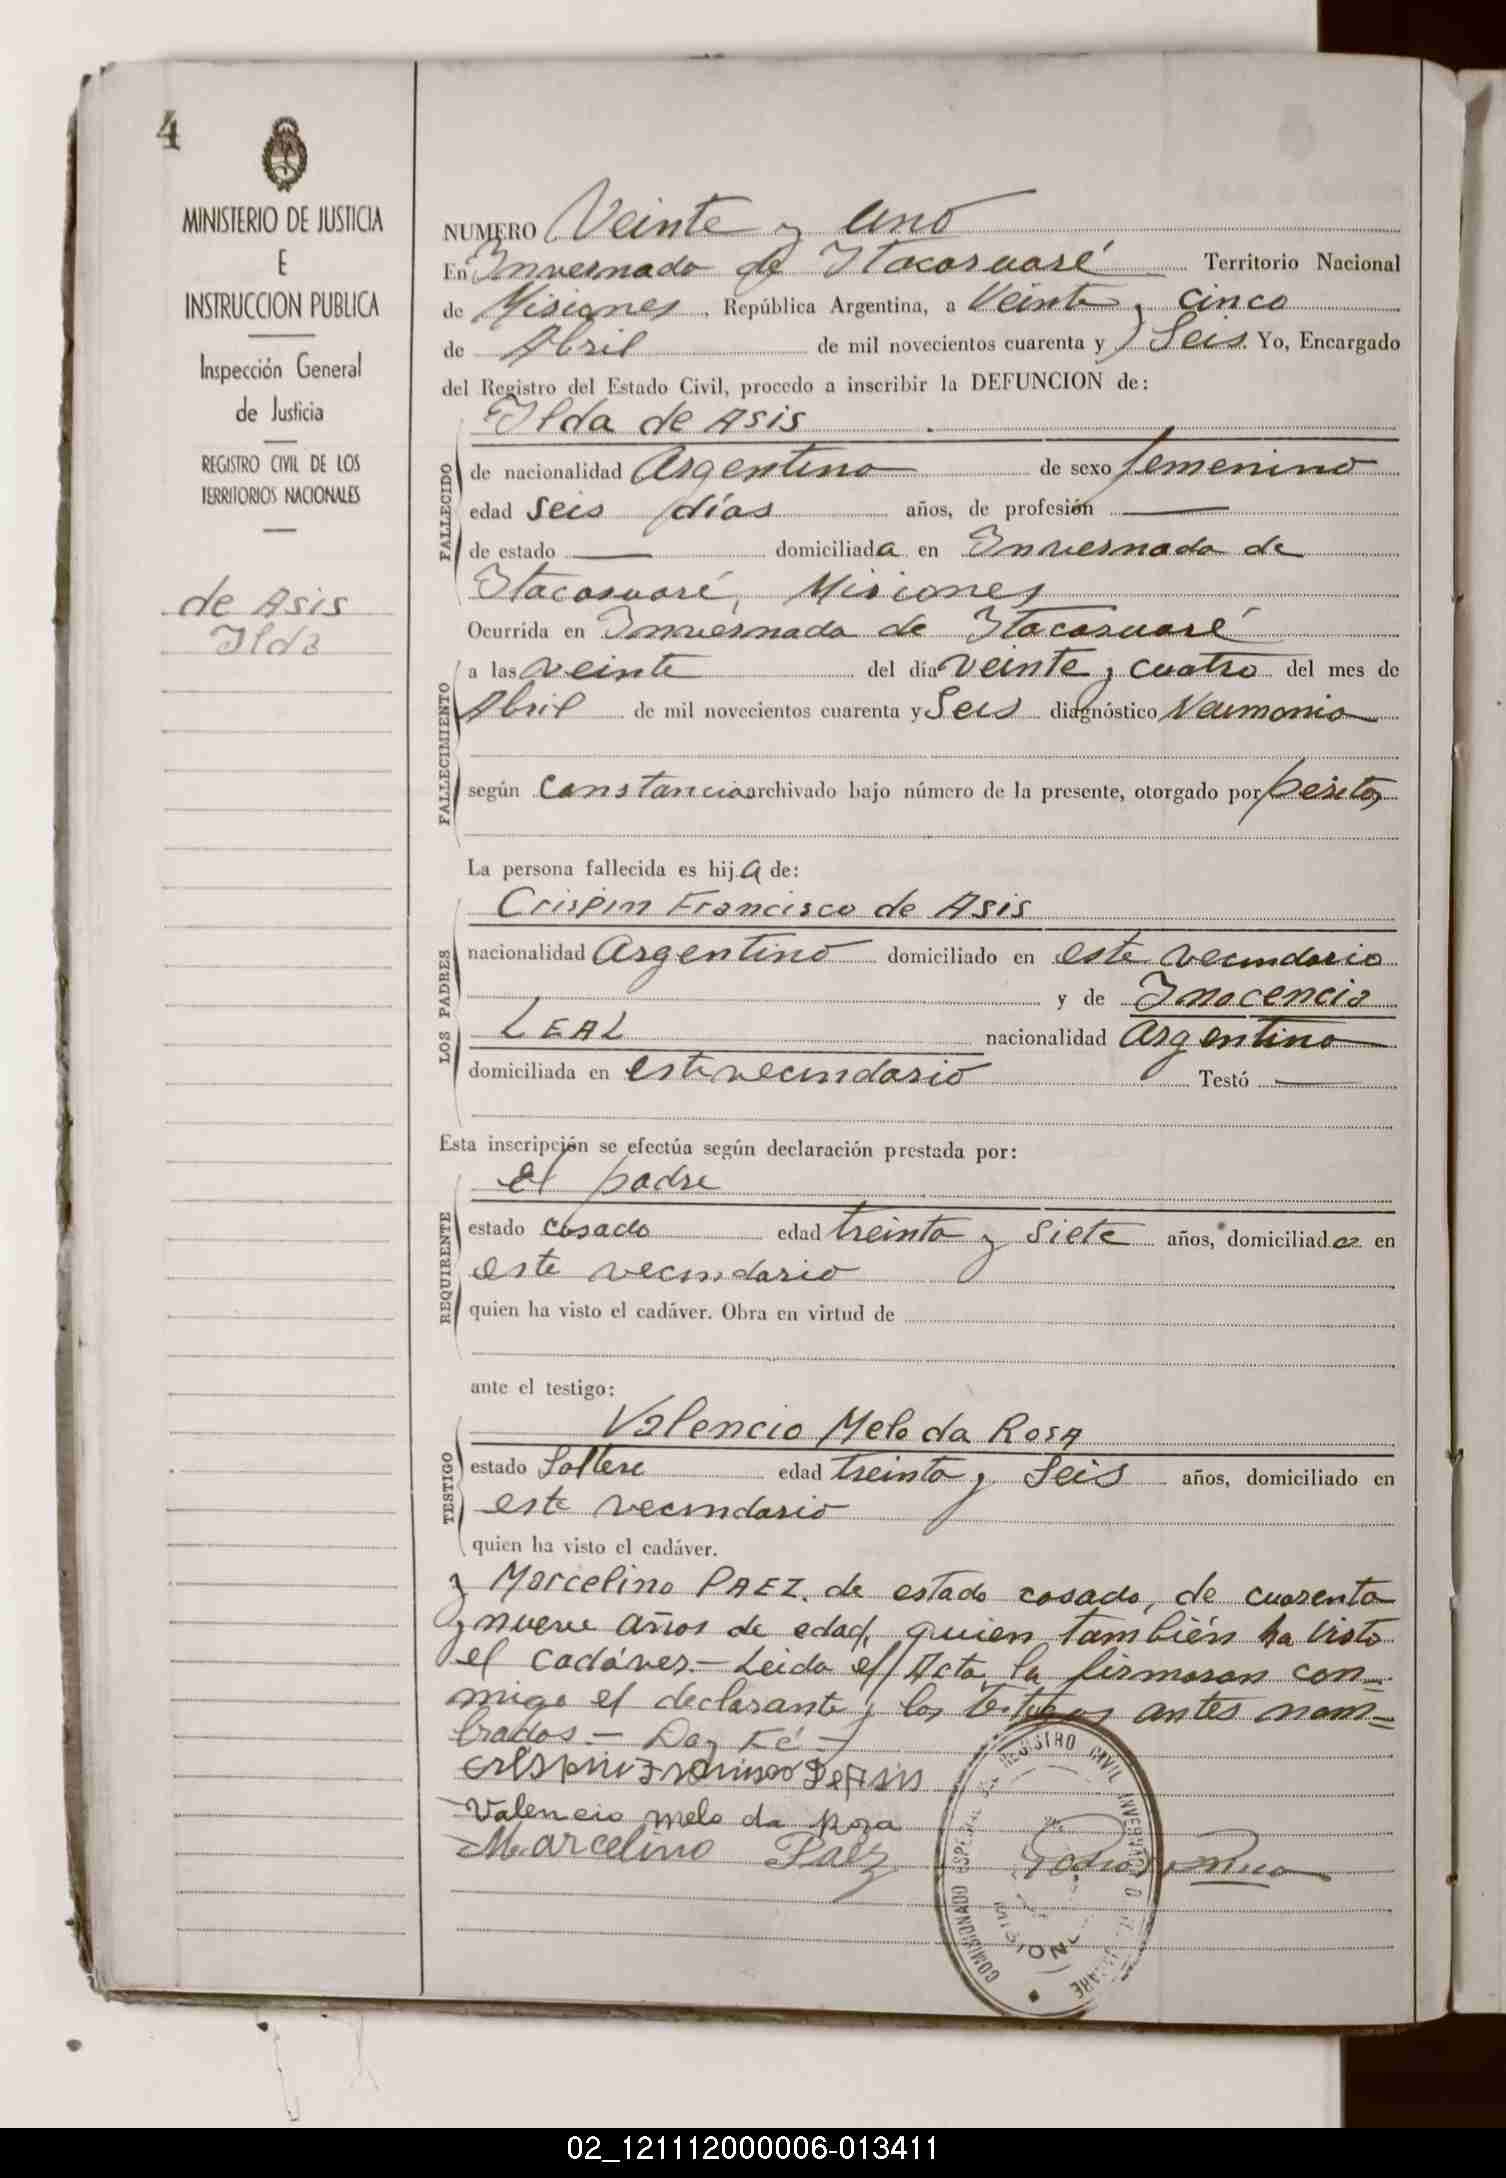 4
MINISTERIO DE JUSTICIA
E
INSTRUCCION PUBLICA
Inspección General
de Justicia
REGISTRO CIVIL DE LOS
TERRITORIOS NACIONALES
de Asis
Ilda
NUMERO Veinte y uno
En Invernada de Itacaruaré Territorio Nacional
de Misiones, República Argentina, a Veinte y cinco
de Abril de mil novecientos cuarenta y Seis. Yo, Encargado
del Registro del Estado Civil, procedo a inscribir la DEFUNCION de:
Ilda de Asis
FALLECIDO
de nacionalidad Argentina de sexo femenino
edad seis días años, de profesión —
de estado — domiciliada en Invernada de
Itacaruaré, Misiones
Ocurrida en Invernada de Itacaruaré
FALLECIMIENTO
a las veinte del día veinte y cuatro del mes de
Abril de mil novecientos cuarenta y Seis diagnóstico Neumonia
según constancia archivado bajo número de la presente, otorgado por peritos
La persona fallecida es hija de:
Crispin Francisco de Asis
LOS PADRES
nacionalidad Argentino domiciliado en este vecindario
y de Inocencia
LEAL nacionalidad Argentina
domiciliada en este vecindario Testó —
Esta inscripción se efectúa según declaración prestada por:
el padre
REQUIRENTE
estado casado edad treinta y siete años, domiciliado en
este vecindario
quien ha visto el cadáver. Obra en virtud de
ante el testigo:
Valencio Melo da Rosa
TESTIGO
estado Soltero edad treinta y Seis años, domiciliado en
este vecindario
quien ha visto el cadáver.
y Marcelino PAEZ. de estado casado, de cuarenta
y nueve años de edad, quien también ha visto
el cadáver.— Leida el Acta, la firmaron con=
migo el declarante y los testigos antes nom=
brados — Doy Fé —
Crespin Francisco De Asis
Valencio melo da Rosa
Marcelino Paez
COMISIONADO ESPECIAL DEL REGISTRO CIVIL INVERNADA DE ITACARUARE
MISIONES
02_121112000006-013411